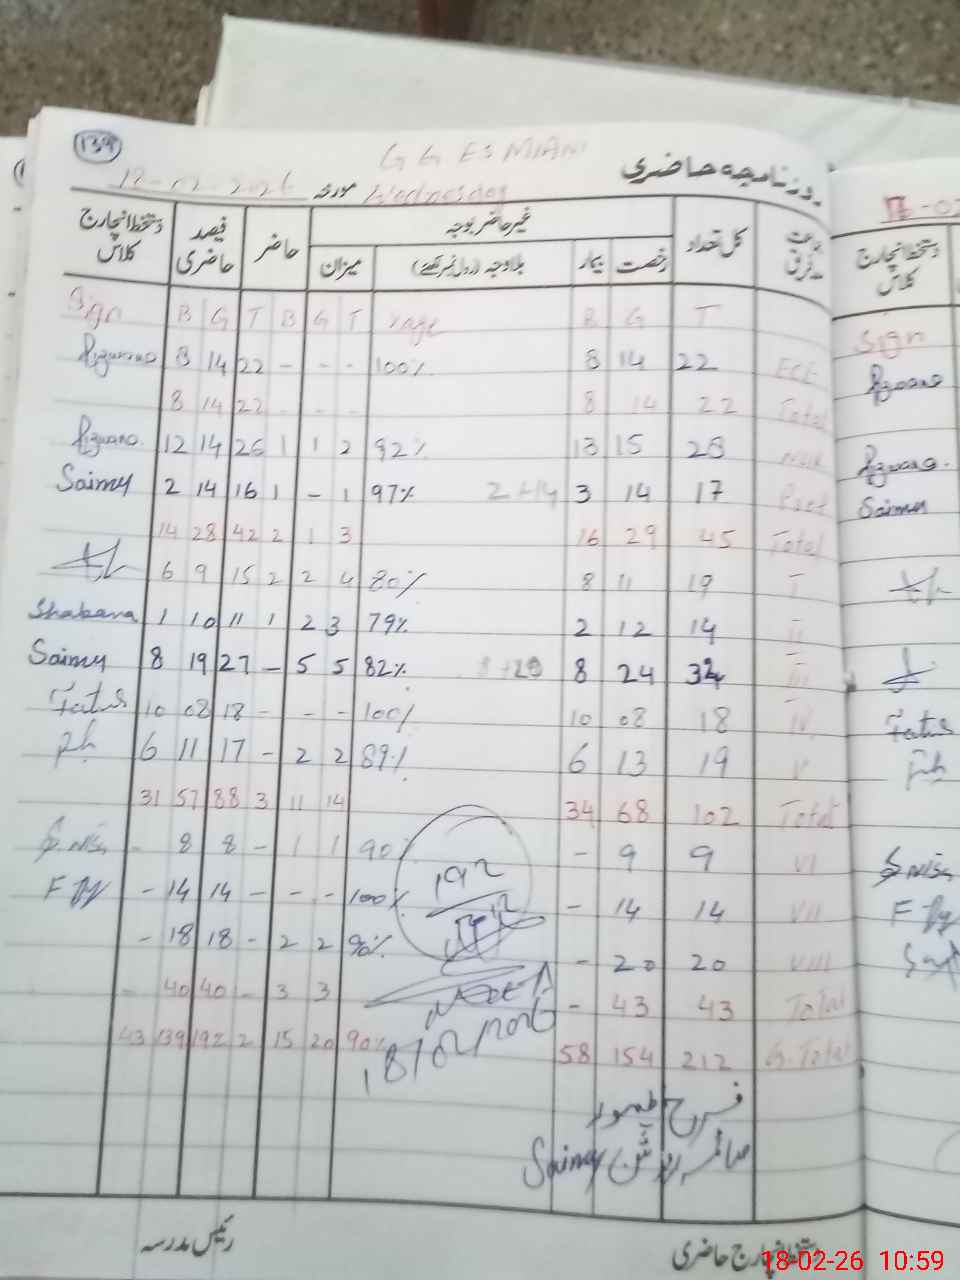 139
G G ES MIANI
روزنامچہ حاضری
18-02-2026 مورخہ Wednesday
دستخط انچارج کلاس فیصد حاضری حاضر غیر حاضر بوجہ کل تعداد
میزان بلاوجہ (رول نمبر لکھئے) بیمار رخصت
Sign B G T B G T B G T
Rizwana 8 14 22 - - - 100% 8 14 22 ECE
8 14 22 - - - 8 14 22 Total
Rizwana 12 14 26 1 1 2 92% 13 15 28
Saimy 2 14 16 1 - 1 97% 2+14 3 14 17
14 28 42 2 1 3 16 29 45 Total
6 9 15 2 2 4 80% 8 11 19 I
Shabana 1 10 11 1 2 3 79% 2 12 14 II
Saimy 8 19 27 - 5 5 82% 8 24 32 III
10 08 18 - - - 100% 10 08 18 IV
6 11 17 - 2 2 89% 6 13 19 V
31 57 88 3 11 14 34 68 102 Total
- 8 8 - 1 1 90% - 9 9 VI
- 14 14 - - - 100% - 14 14 VII
- 18 18 - 2 2 90% - 20 20 VIII
- 40 40 - 3 3 - 43 43 Total
43 139 192 2 15 20 90% 58 154 212 G.Total
192
18/02/2026
Saimy
رئیس مدرسہ
دستخط انچارج حاضری
دستخط انچارج کلاس
Sign
Rizwana
Rizwana
Saimy
18-02-26 10:59